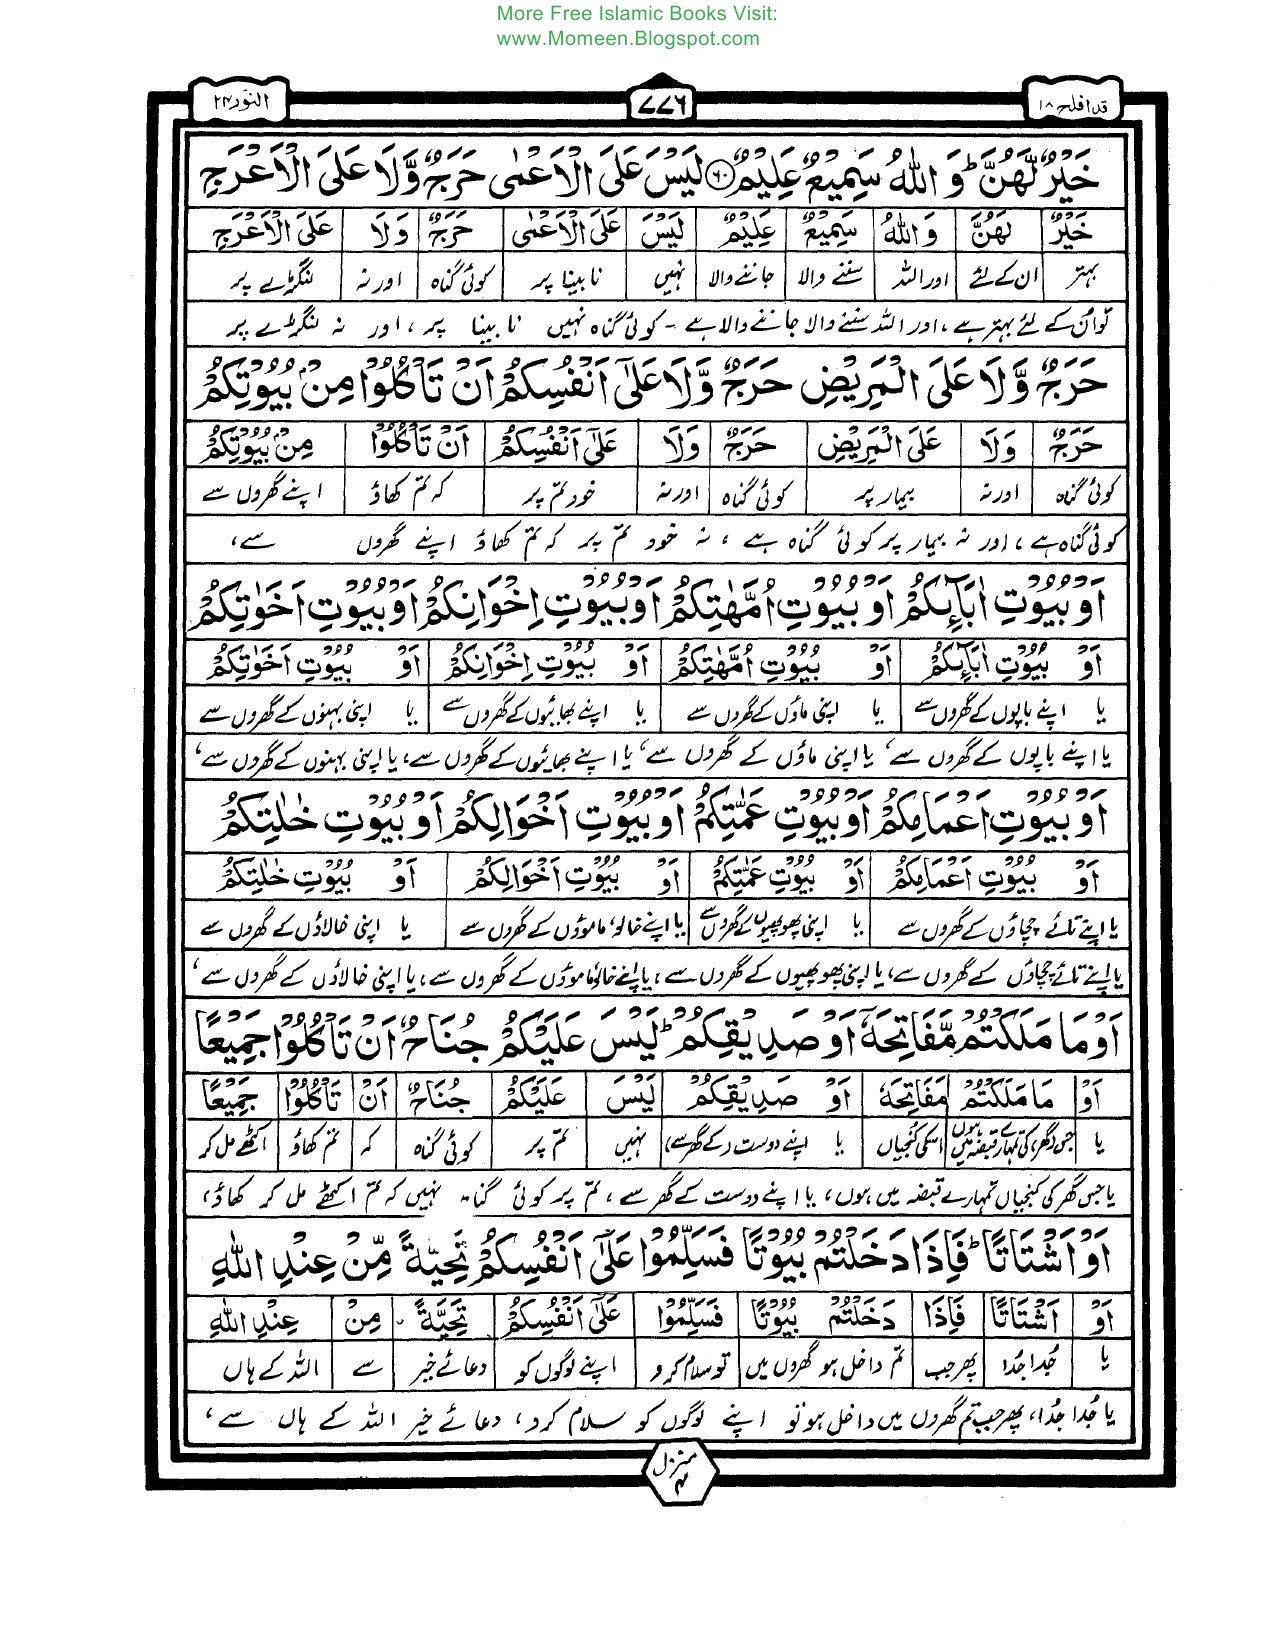 More Free Islamic Books Visit:
www.Momeen.Blogspot.com
قد افلح ۱۸
۷۷۶
النور ۲۴
خَيْرٌ لَّهُنَّ ؕ وَ اللّٰهُ سَمِيْعٌ عَلِيْمٌ ۶۰ لَيْسَ عَلَى الْاَعْمٰى حَرَجٌ وَّلَا عَلَى الْاَعْرَجِ
خَيْرٌ لَهُنَّ وَاللّٰهُ سَمِيْعٌ عَلِيْمٌ لَيْسَ عَلَى الْاَعْمٰى حَرَجٌ وَلَا عَلَى الْاَعْرَجِ
بہتر ان کے لئے اور اللہ سننے والا جاننے والا نہیں نابینا پر کوئی گناہ اور نہ لنگڑے پر
تو اُن کے لئے بہتر ہے، اور اللہ سننے والا جاننے والا ہے - کوئی گناہ نہیں نابینا پر، اور نہ لنگڑے پر
حَرَجٌ وَّلَا عَلَى الْمَرِيْضِ حَرَجٌ وَّلَا عَلٰٓى اَنْفُسِكُمْ اَنْ تَاْكُلُوْا مِنْ بُيُوْتِكُمْ
حَرَجٌ وَلَا عَلَى الْمَرِيْضِ حَرَجٌ وَلَا عَلٰٓى اَنْفُسِكُمْ اَنْ تَاْكُلُوْا مِنْ بُيُوْتِكُمْ
کوئی گناہ اور نہ بیمار پر کوئی گناہ اور نہ خود تم پر کہ تم کھاؤ اپنے گھروں سے
کوئی گناہ ہے، اور نہ بیمار پر کوئی گناہ ہے، نہ خود تم پر کہ تم کھاؤ اپنے گھروں سے،
اَوْ بُيُوْتِ اٰبَآئِكُمْ اَوْ بُيُوْتِ اُمَّهٰتِكُمْ اَوْ بُيُوْتِ اِخْوَانِكُمْ اَوْ بُيُوْتِ اَخَوٰتِكُمْ
اَوْ بُيُوْتِ اٰبَآئِكُمْ اَوْ بُيُوْتِ اُمَّهٰتِكُمْ اَوْ بُيُوْتِ اِخْوَانِكُمْ اَوْ بُيُوْتِ اَخَوٰتِكُمْ
یا اپنے باپوں کے گھروں سے یا اپنی ماؤں کے گھروں سے یا اپنے بھائیوں کے گھروں سے یا اپنی بہنوں کے گھروں سے
یا اپنے باپوں کے گھروں سے، یا اپنی ماؤں کے گھروں سے، یا اپنے بھائیوں کے گھروں سے، یا اپنی بہنوں کے گھروں سے،
اَوْ بُيُوْتِ اَعْمَامِكُمْ اَوْ بُيُوْتِ عَمّٰتِكُمْ اَوْ بُيُوْتِ اَخْوَالِكُمْ اَوْ بُيُوْتِ خٰلٰتِكُمْ
اَوْ بُيُوْتِ اَعْمَامِكُمْ اَوْ بُيُوْتِ عَمّٰتِكُمْ اَوْ بُيُوْتِ اَخْوَالِكُمْ اَوْ بُيُوْتِ خٰلٰتِكُمْ
یا اپنے تائے چچاؤں کے گھروں سے یا اپنی پھوپھیوں کے گھروں سے یا اپنے خالو، ماموؤں کے گھروں سے یا اپنی خالاؤں کے گھروں سے
یا اپنے تائے چچاؤں کے گھروں سے، یا اپنی پھوپھیوں کے گھروں سے، یا اپنے خالو ماموؤں کے گھروں سے، یا اپنی خالاؤں کے گھروں سے،
اَوْ مَا مَلَكْتُمْ مَّفَاتِحَهٗٓ اَوْ صَدِيْقِكُمْ ؕ لَيْسَ عَلَيْكُمْ جُنَاحٌ اَنْ تَاْكُلُوْا جَمِيْعًا
اَوْ مَا مَلَكْتُمْ مَفَاتِحَهٗٓ اَوْ صَدِيْقِكُمْ لَيْسَ عَلَيْكُمْ جُنَاحٌ اَنْ تَاْكُلُوْا جَمِيْعًا
یا جس (گھر) کی تمہارے قبضہ میں ہوں اسکی کنجیاں یا اپنے دوست (کے گھر سے) نہیں تم پر کوئی گناہ کہ تم کھاؤ اکٹھے مل کر
یا جس گھر کی کنجیاں تمہارے قبضہ میں ہوں، یا اپنے دوست کے گھر سے، تم پر کوئی گناہ نہیں کہ تم اکٹھے مل کر کھاؤ،
اَوْ اَشْتَاتًا ؕ فَاِذَا دَخَلْتُمْ بُيُوْتًا فَسَلِّمُوْا عَلٰٓى اَنْفُسِكُمْ تَحِيَّةً مِّنْ عِنْدِ اللّٰهِ
اَوْ اَشْتَاتًا فَاِذَا دَخَلْتُمْ بُيُوْتًا فَسَلِّمُوْا عَلٰٓى اَنْفُسِكُمْ تَحِيَّةً مِنْ عِنْدِ اللّٰهِ
یا جُدا جُدا پھر جب تم داخل ہو گھروں میں تو سلام کرو اپنے لوگوں کو دعائے خیر سے اللہ کے ہاں
یا جُدا جُدا، پھر جب تم گھروں میں داخل ہو تو اپنے لوگوں کو سلام کرو، دعائے خیر اللہ کے ہاں سے،
منزل ۴